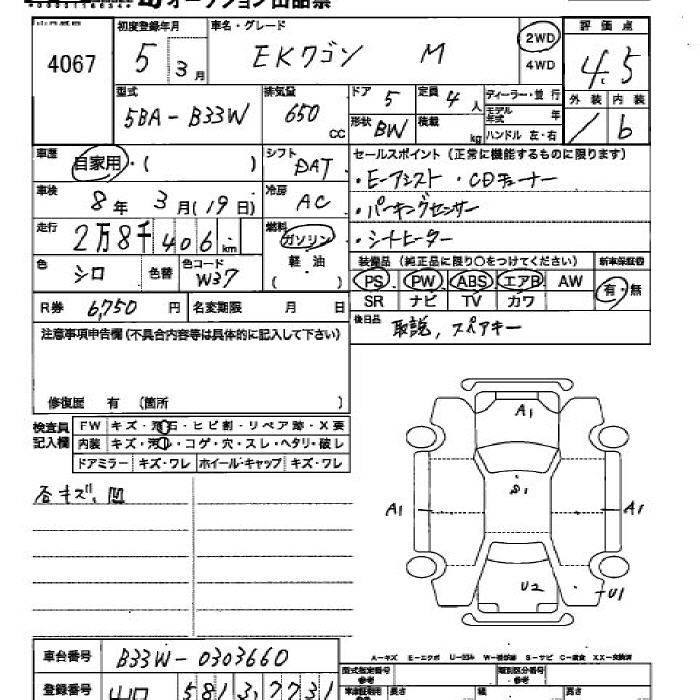 オークション出品票
4067
初度登録年月
5年 3月
車名・グレード
EKワゴン M
2WD
4WD
評価点
4.5
型式
5BA-B33W
排気量
650 CC
ドア 5
定員 4人
ディーラー・並行
モデル年式 年
形状 BW
積載 kg
ハンドル 左・右
外装 内装
b
車歴
自家用・( )
シフト
DAT
セールスポイント (正常に機能するものに限ります)
・E-アシスト ・CDチューナー
・パーキングセンサー
・シートヒーター
車検
8年 3月(19日)
冷房
AC
走行
2万8千406km
燃料
ガソリン
軽・油
( )
色
シロ
色替
色コード
W37
装備品 (純正品に限り○をつけてください)
新車保証書
PS PW ABS エアB AW
SR ナビ TV カワ
有・無
R券 6,750円
名変期限 月 日
後日品
取説, スペアキー
注意事項申告欄 (不具合内容等は具体的に記入して下さい)
修復歴 有 (箇所 )
検査員記入欄
FW キズ・飛石・ヒビ割・リペア跡・X要
内装 キズ・汚れ・コゲ・穴・スレ・ヘタリ・破レ
ドアミラー キズ・ワレ ホイール・キャップ キズ・ワレ
キズ、凹
A1
A1
A1
U2
U1
A-キズ E-エクボ U-凹み W-補修跡 S-サビ C-腐食 XX-交換済
車台番号
B33W-0303660
型式指定番号
参考
類別区分番号
参考
登録番号
山口 581 ひ 7731
長さ
幅
高さ